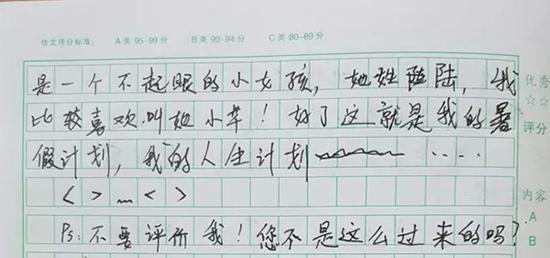 作文评分标准: A类 95-99分 B类 90-94分 C类 80-89分
是一个不起眼的小女孩，她姓陆，我
比较喜欢叫她小草！好了这就是我的暑
假计划，我的人生计划 ....
< > … < >
Ps:不要评价我！您不是这么过来的吗？
优秀
☆☆
评分
内容
A
B